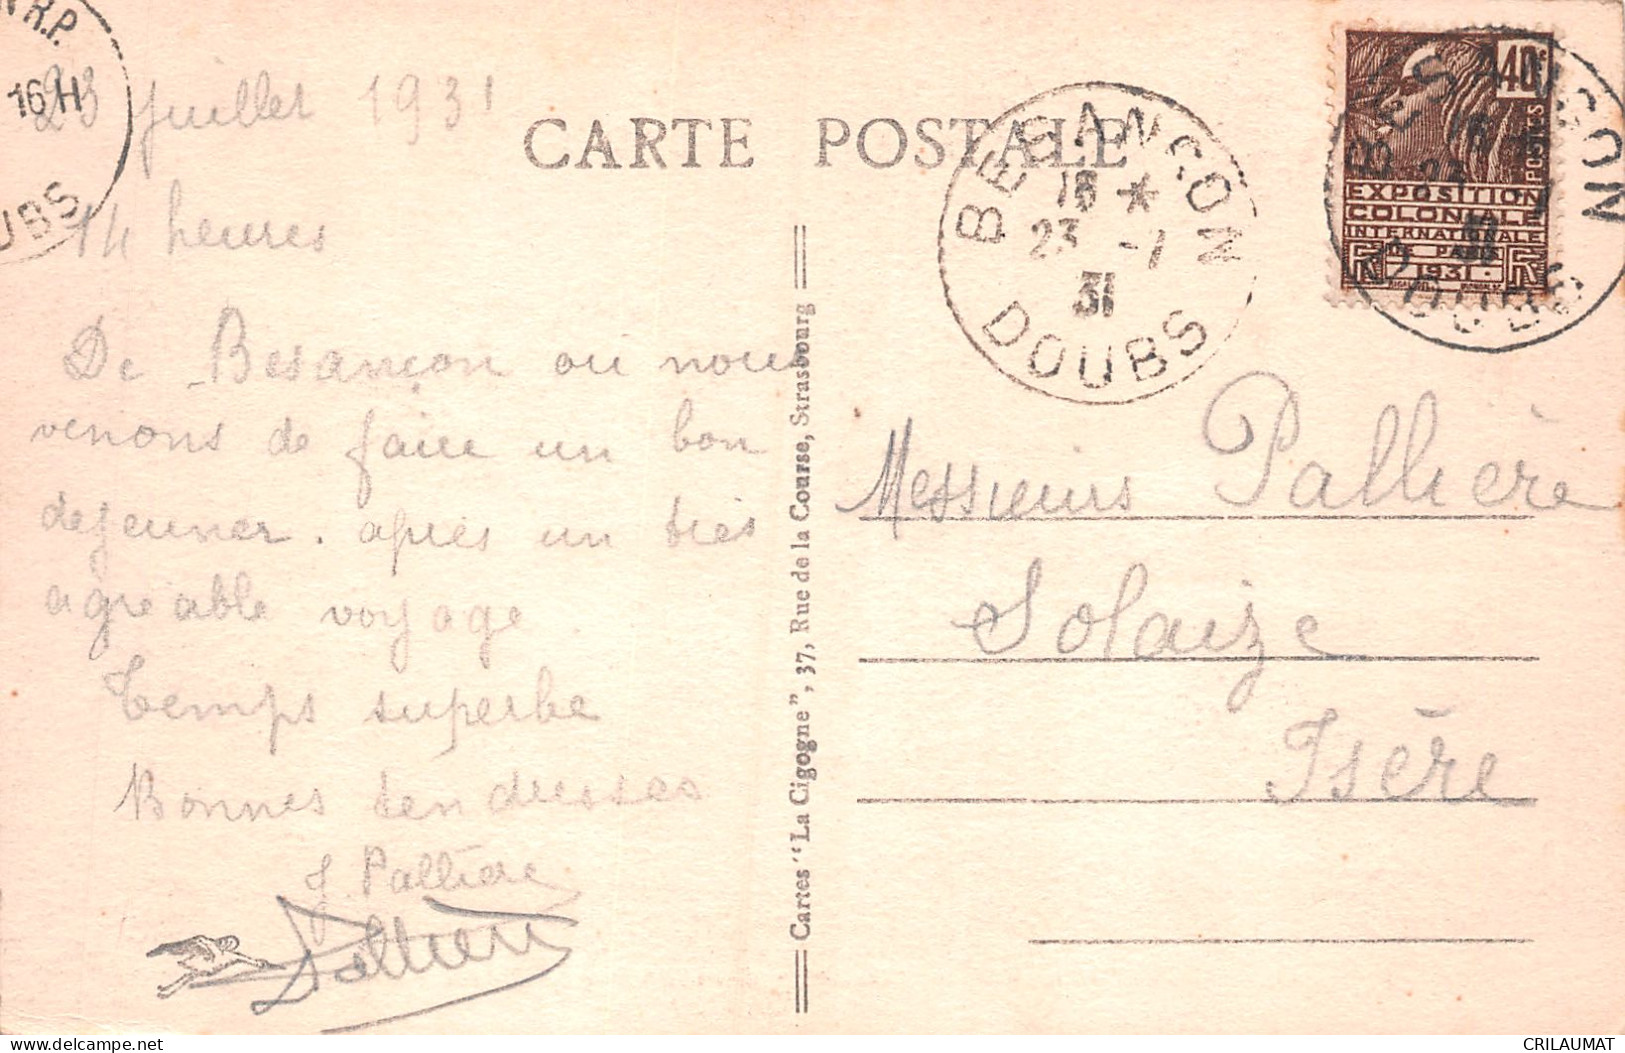 N R.P.
16 H
OUBS
23 juillet 1931
14 heures
De Besançon où nous
venons de faire un bon
dejeuner. après un très
agréable voyage
Temps superbe
Bonnes tendresses
J. Pallière
Pallière
CARTE POSTALE
BESANCON
16 *
23 -7
31
DOUBS
40c
POSTES
EXPOSITION
COLONIALE
INTERNATIONALE
PARIS
1931
RF
BESANCON
DOUBS
Cartes "La Cigogne", 37, Rue de la Course, Strasbourg
Messieurs Pallière
Solaize
Isère
CRILAUMAT